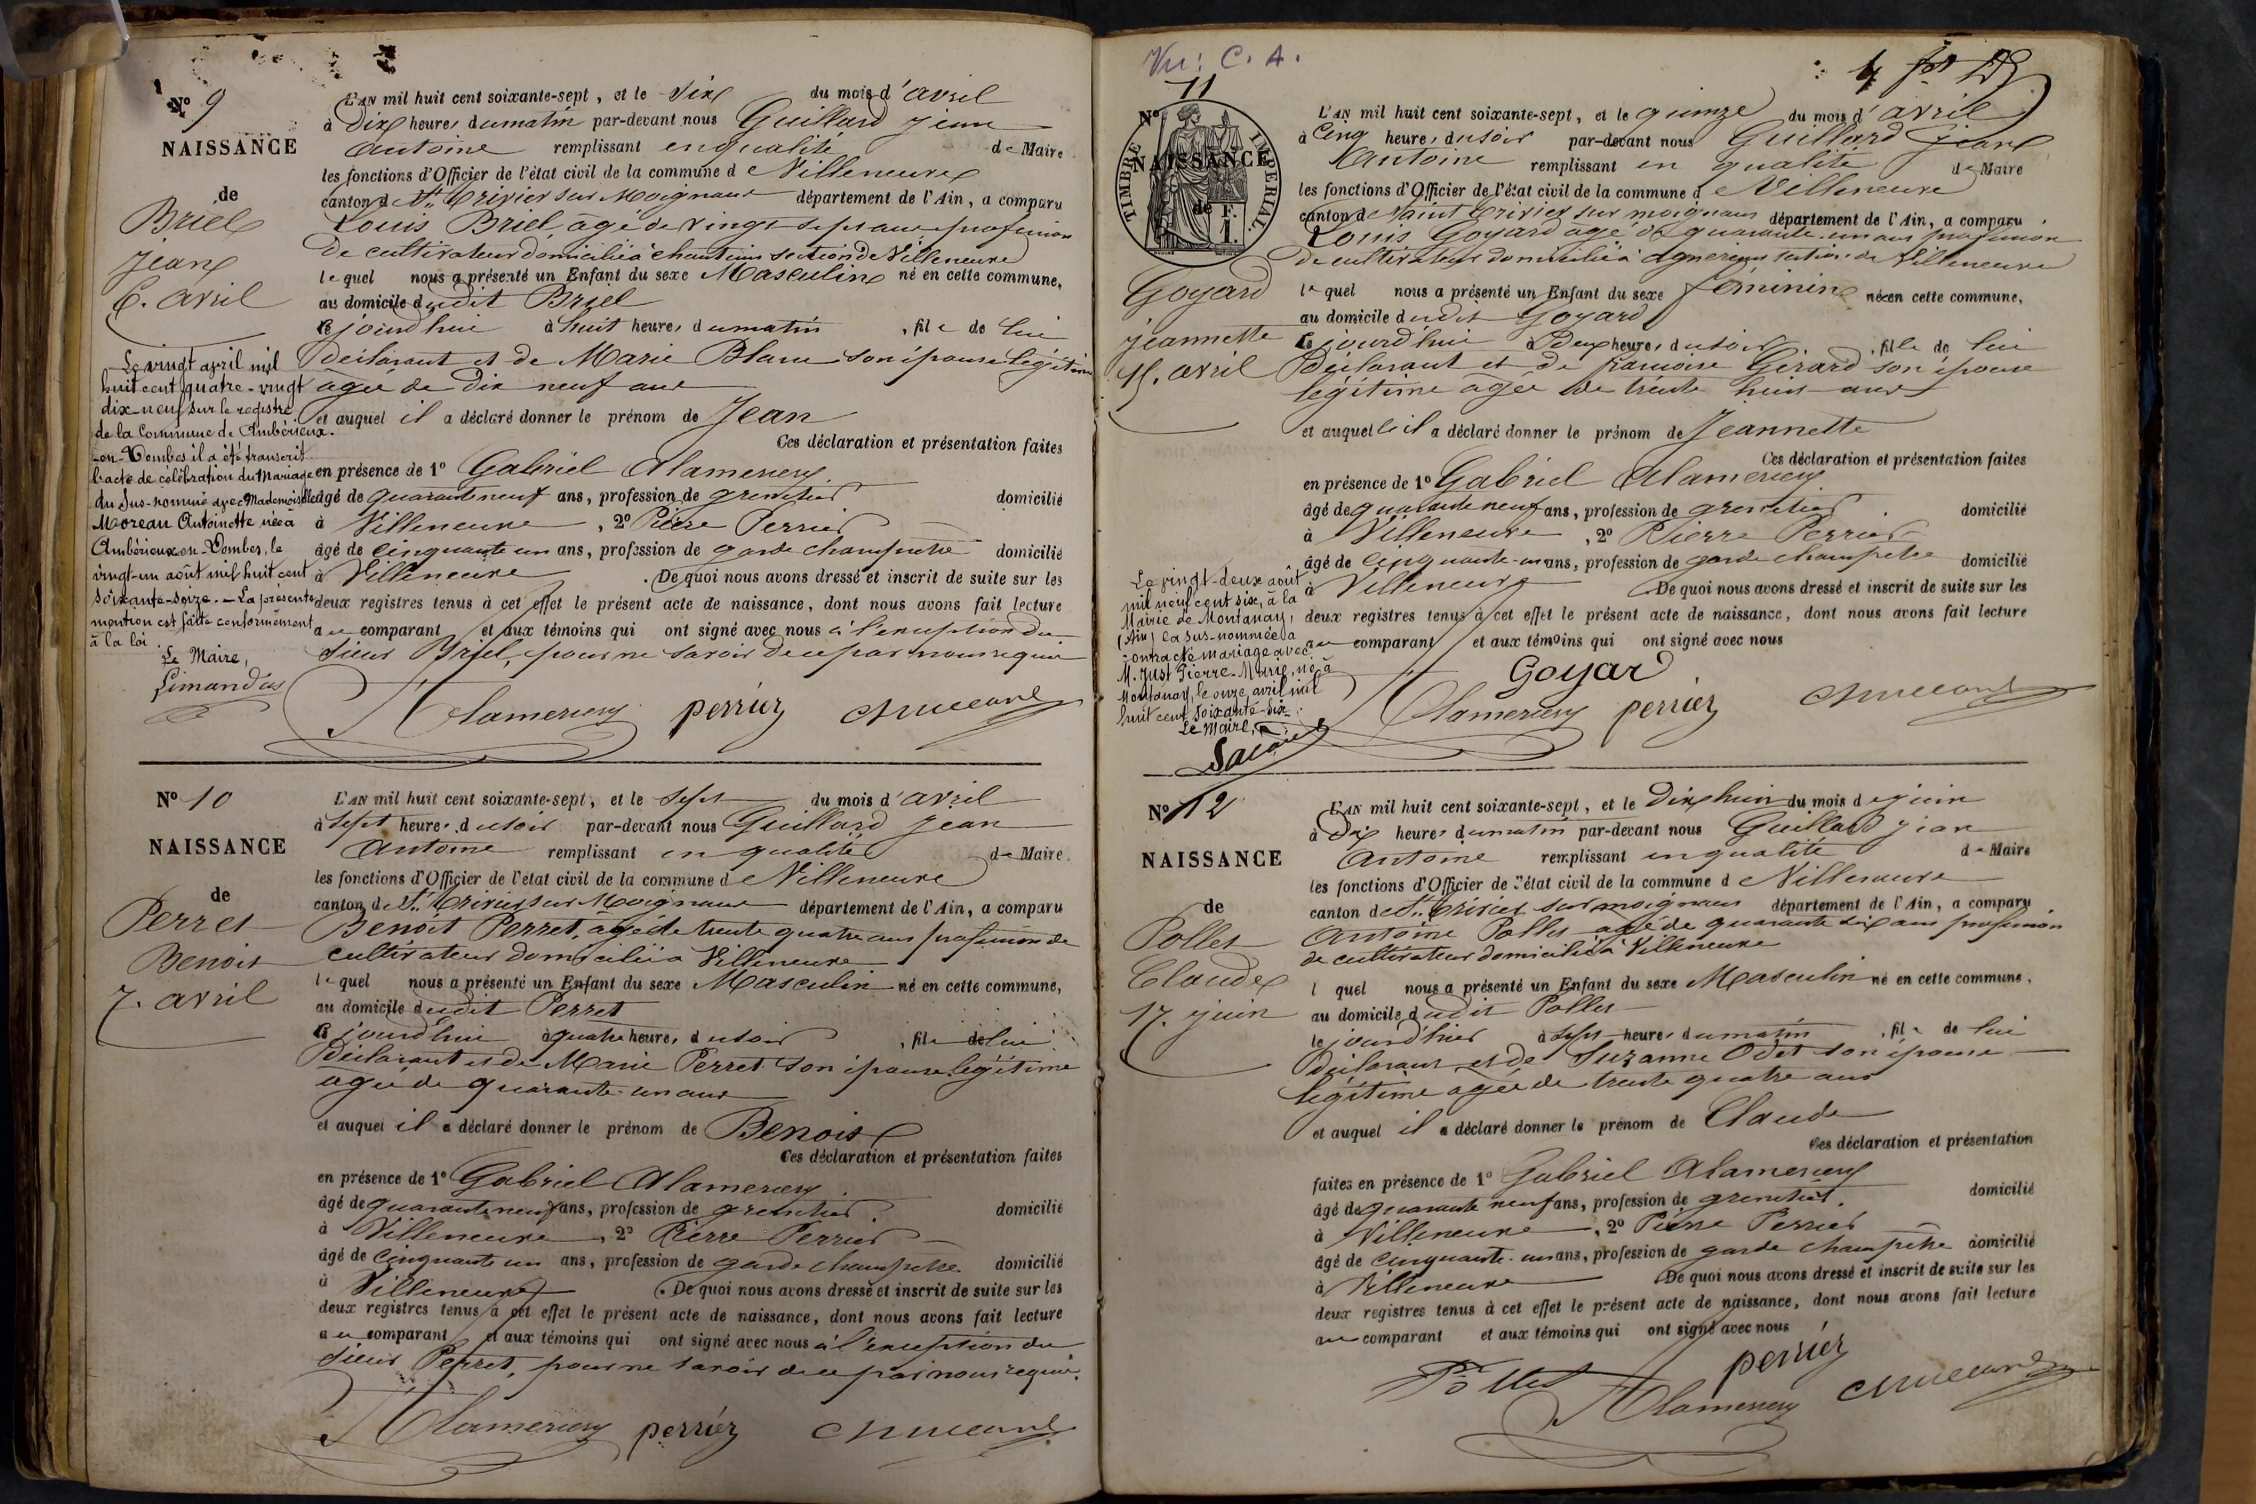 Nº 9
NAISSANCE
de
Briel
Jean
6. avril
Le vingt april mil
huit cent quatre-vingt
dix-neuf sur le registre
de la Commune de Ambérieux-
en-Dombes il a été transcrit
l'acte de célébration du Mariage
du sus-nommé avec Mademoiselle
Moreau Antoinette née à
Ambérieux-en-Dombes, le
vingt-un août mil huit cent
soixante-seize. — La présente
mention est faite conformément
à la loi.
Le Maire,
Limandas
L'AN mil huit cent soixante-sept, et le Six du mois d'avril
à Dix heures du matin par-devant nous Guillard Jean
Antoine remplissant en qualité de Maire
les fonctions d'Officier de l'état civil de la commune de Villeneuve
canton de St. Trivier sur Moignans département de l'Ain, a comparu
Louis Briel, âgé de vingt sept ans profession
de cultivateur domicilié à chanteins section de Villeneuve
lequel nous a présenté un Enfant du sexe Masculin né en cette commune,
au domicile dudit Briel
cejourd'hui à huit heures du matin, fils de lui
Déclarant et de Marie Blanc son épouse légitime
agée de Dix neuf ans
et auquel il a déclaré donner le prénom de Jean
Ces déclaration et présentation faites
en présence de 1º Gabriel Alamercery
âgé de quarante neuf ans, profession de grenetier domicilié
à Villeneuve, 2º Pierre Perrier
âgé de cinquante un ans, profession de garde champetre domicilié
à Villeneuve. De quoi nous avons dressé et inscrit de suite sur les
deux registres tenus à cet effet le présent acte de naissance, dont nous avons fait lecture
au comparant et aux témoins qui ont signé avec nous à l'exception du
sieur Briel, pour ne savoir de ce par nous requis
Alamercery perriér
Nº 10
NAISSANCE
de
Perret
Benoit
7. avril
L'AN mil huit cent soixante-sept, et le sept du mois d'avril
à sept heures du soir par-devant nous Guillard Jean
Antoine remplissant en qualité de Maire
les fonctions d'Officier de l'état civil de la commune de Villeneuve
canton de St. Trivier sur Moignans département de l'Ain, a comparu
Benoit Perret, agé de trente quatre ans profession de
cultivateur domicilié à Villeneuve
lequel nous a présenté un Enfant du sexe Masculin né en cette commune,
au domicile dudit Perret
cejourd'hui à quatre heures du soir, fils de lui
Déclarant et de Marie Perret son épouse légitime
agée de quarante un ans
et auquel il a déclaré donner le prénom de Benoit
Ces déclaration et présentation faites
en présence de 1º Gabriel Alamercery
âgé de quarante neuf ans, profession de grenetier domicilié
à Villeneuve, 2º Pierre Perrier
âgé de cinquante un ans, profession de garde champetre domicilié
à Villeneuve. De quoi nous avons dressé et inscrit de suite sur les
deux registres tenus à cet effet le présent acte de naissance, dont nous avons fait lecture
au comparant et aux témoins qui ont signé avec nous à l'exception du
sieur Perret, pour ne savoir de ce par nous requis.
Alamercery perriér
Vu: C. A.
Nº 11
TIMBRE IMPERIAL
F.
1.
NAISSANCE
de
Goyard
Jeannette
15. avril
Le vingt-deux août
mil neuf cent six, à la
Mairie de Montanay,
(Ain) la sus-nommée a
contracté mariage avec
M. Just Pierre-Marie, né à
Montanay, le onze avril mil
huit cent soixante-dix.
Le Maire,
L'AN mil huit cent soixante-sept, et le quinze du mois d'avril
à Cinq heures du soir par-devant nous Guillard Jean
Antoine remplissant en qualité de Maire
les fonctions d'Officier de l'état civil de la commune de Villeneuve
canton de Saint Trivier sur moignans département de l'Ain, a comparu
Louis Goyard agé de quarante-un ans profession
de cultivateur domicilié à agnereins section de Villeneuve
lequel nous a présenté un Enfant du sexe féminin née en cette commune,
au domicile dudit Goyard
cejourd'hui à Deux heures du soir, fille de lui
Déclarant et de francoise Gérard son épouse
légitime agée de trente huit ans
et auquelle il a déclaré donner le prénom de Jeannette
Ces déclaration et présentation faites
en présence de 1º Gabriel Alamercery
âgé de quarante neuf ans, profession de grenetier domicilié
à Villeneuve, 2º Pierre Perrier
âgé de Cinquante-un ans, profession de garde champetre domicilié
à Villeneuve De quoi nous avons dressé et inscrit de suite sur les
deux registres tenus à cet effet le présent acte de naissance, dont nous avons fait lecture
au comparant et aux témoins qui ont signé avec nous
Goyard
Alamercery perriér
Nº 12
NAISSANCE
de
Pollet
Claude
17. juin
L'AN mil huit cent soixante-sept, et le Dix huit du mois de juin
à Dix heures du matin par-devant nous Guillard Jean
Antoine remplissant en qualité de Maire
les fonctions d'Officier de l'état civil de la commune de Villeneuve
canton de St. Trivier sur moignans département de l'Ain, a comparu
Antoine Pollet agé de quarante six ans profession
de cultivateur domicilié à Villeneuve
lequel nous a présenté un Enfant du sexe Masculin né en cette commune.
au domicile dudit Pollet
le jour d'hier à sept heures du matin, fils de lui
Déclarant et de Suzanne Odet son épouse
légitime agée de trente quatre ans
et auquel il a déclaré donner le prénom de Claude
Ces déclaration et présentation
faites en présence de 1º Gabriel Alamercery
âgé de quarante neuf ans, profession de grenetier. domicilié
à Villeneuve, 2º Pierre Perrier
âgé de cinquante-un ans, profession de garde champetre domicilié
à Villeneuve De quoi nous avons dressé et inscrit de suite sur les
deux registres tenus à cet effet le présent acte de naissance, dont nous avons fait lecture
au comparant et aux témoins qui ont signé avec nous
perriér
Pollet Alamercery